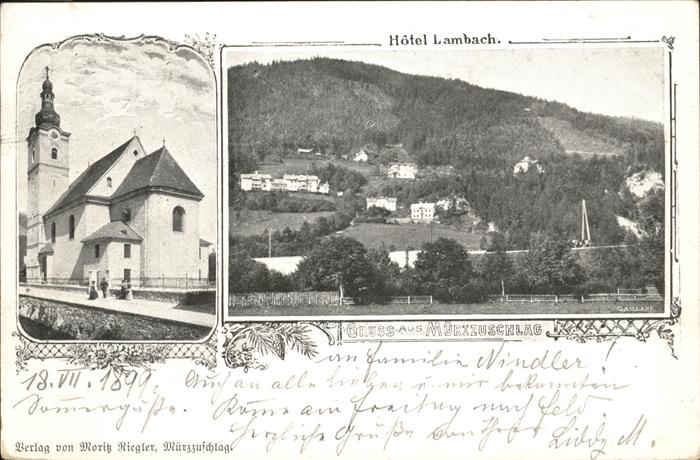 Hôtel Lambach.
GRUSS AUS MÜRZZUSCHLAG
an Familie Nindler!
18. VII. 1899. Auch an alle lieben u. nur bekannten
Sommergäste. Komme am Freitag nach
Herzliche Grüße von Liddy M.
Verlag von Moritz Riegler, Mürzzuschlag.